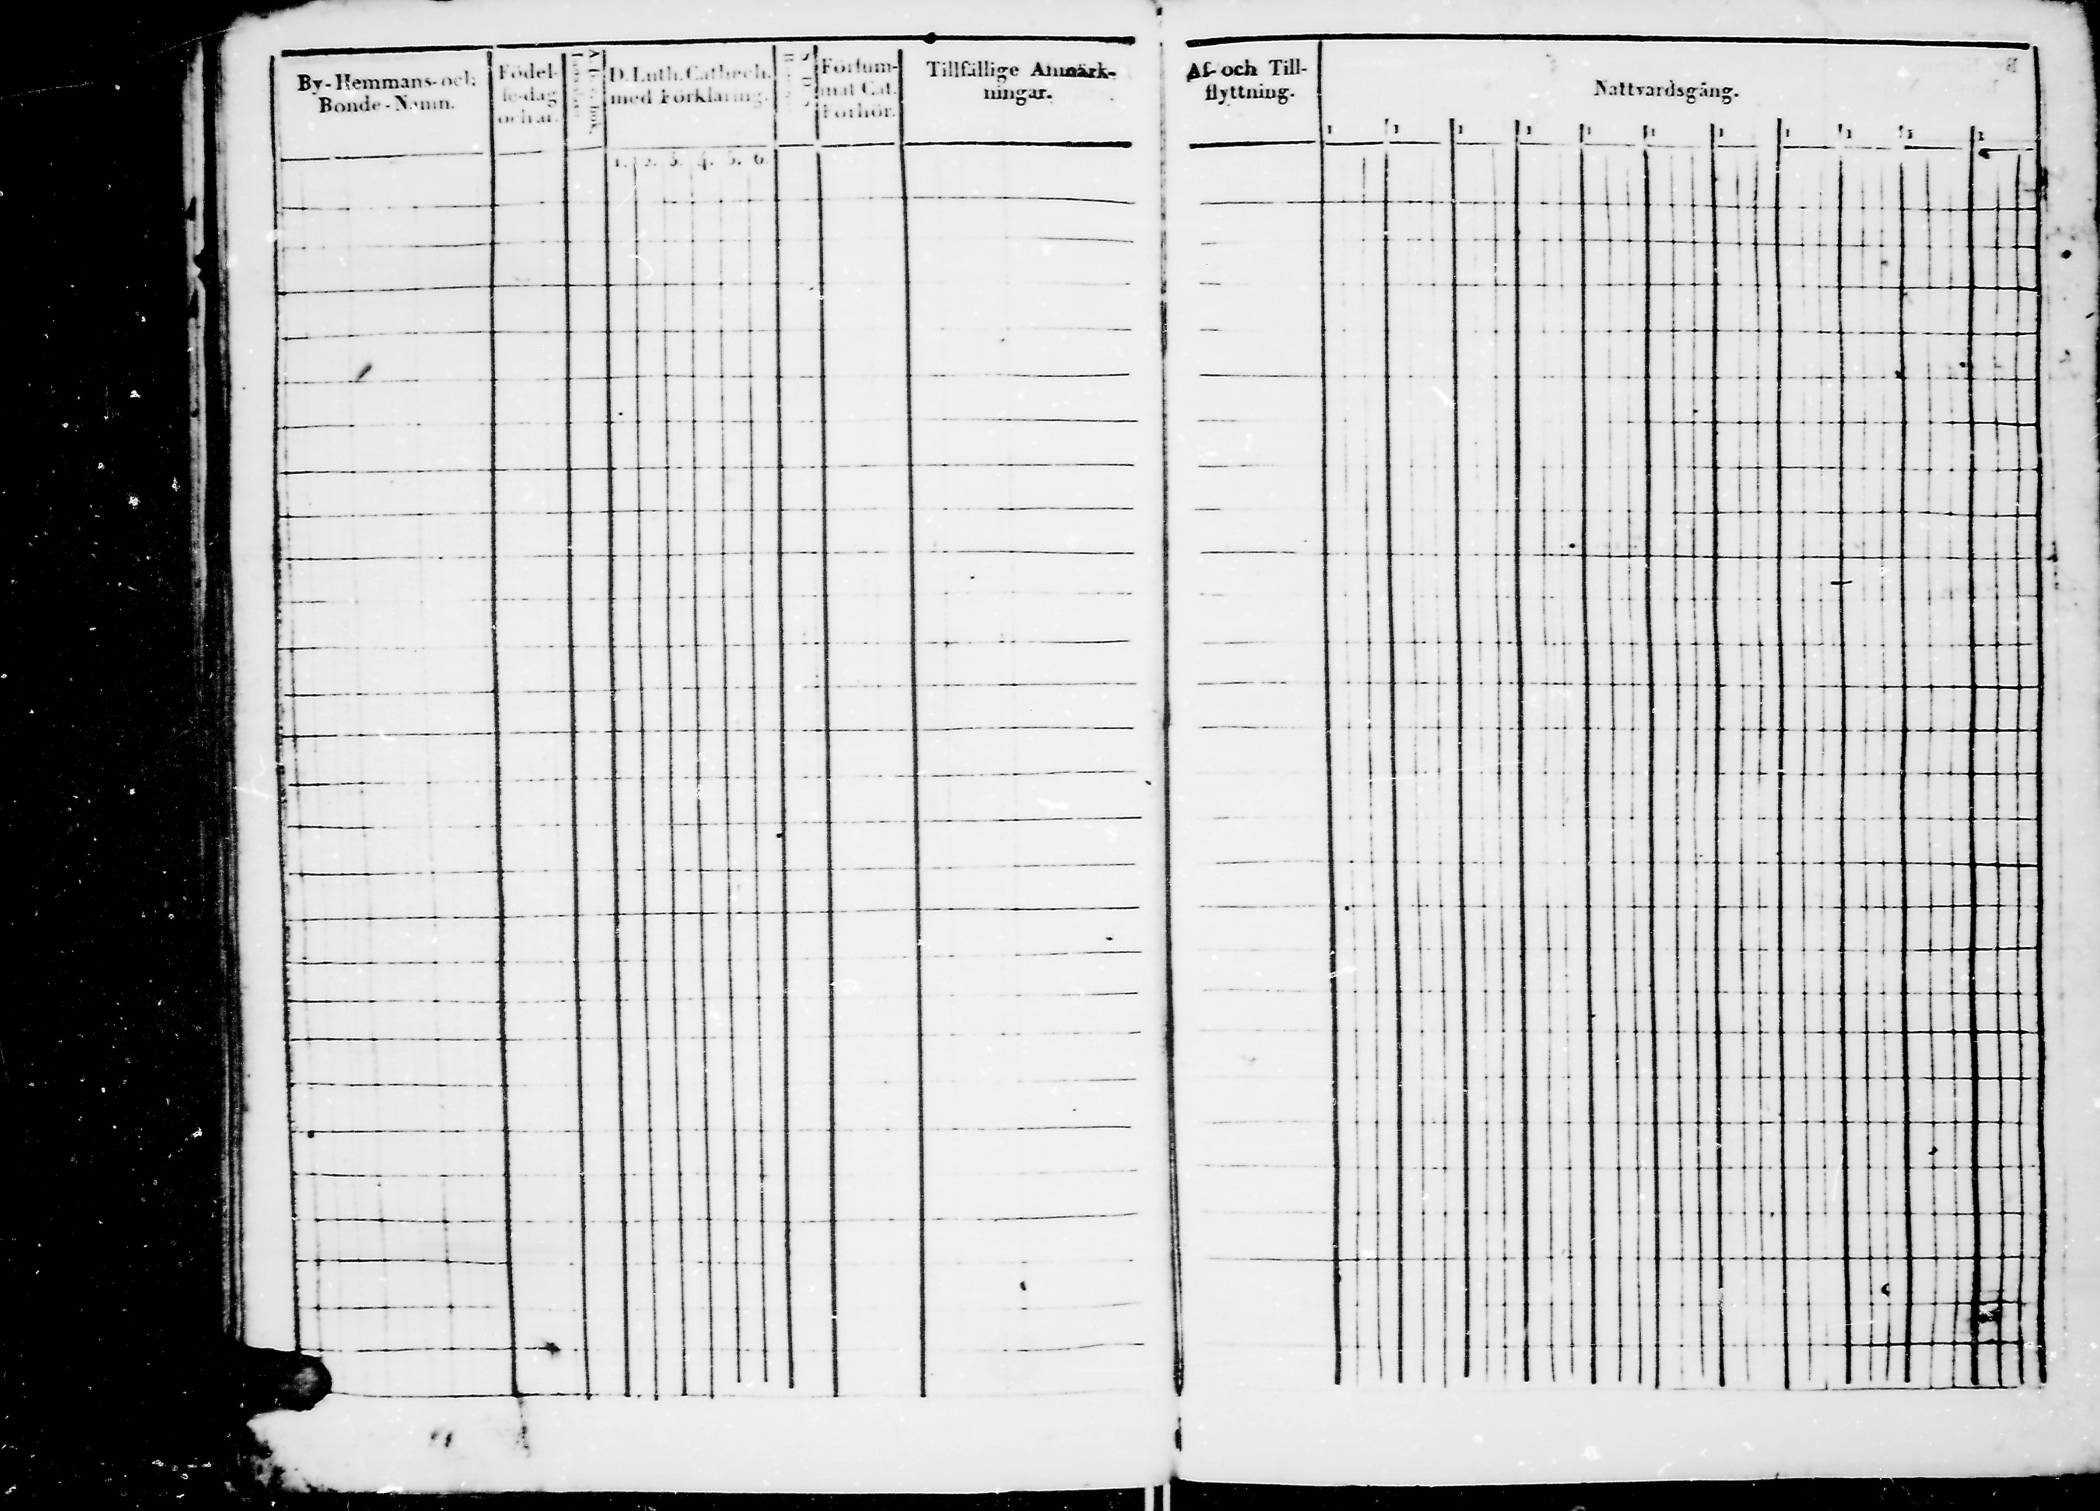 By-Hemmans- och
Bonde-Namn.
Födel-
se-dag
och år.
D. Luth. Cathech.
med Förklaring.
1. 2. 3. 4. 5. 6.
Försum-
mat Cat.
Förhör.
Tillfällige Anmärk-
ningar.
Af- och Till-
flyttning.
Nattvardsgång.
1 1 1 1 1 1 1 1 1 1 1